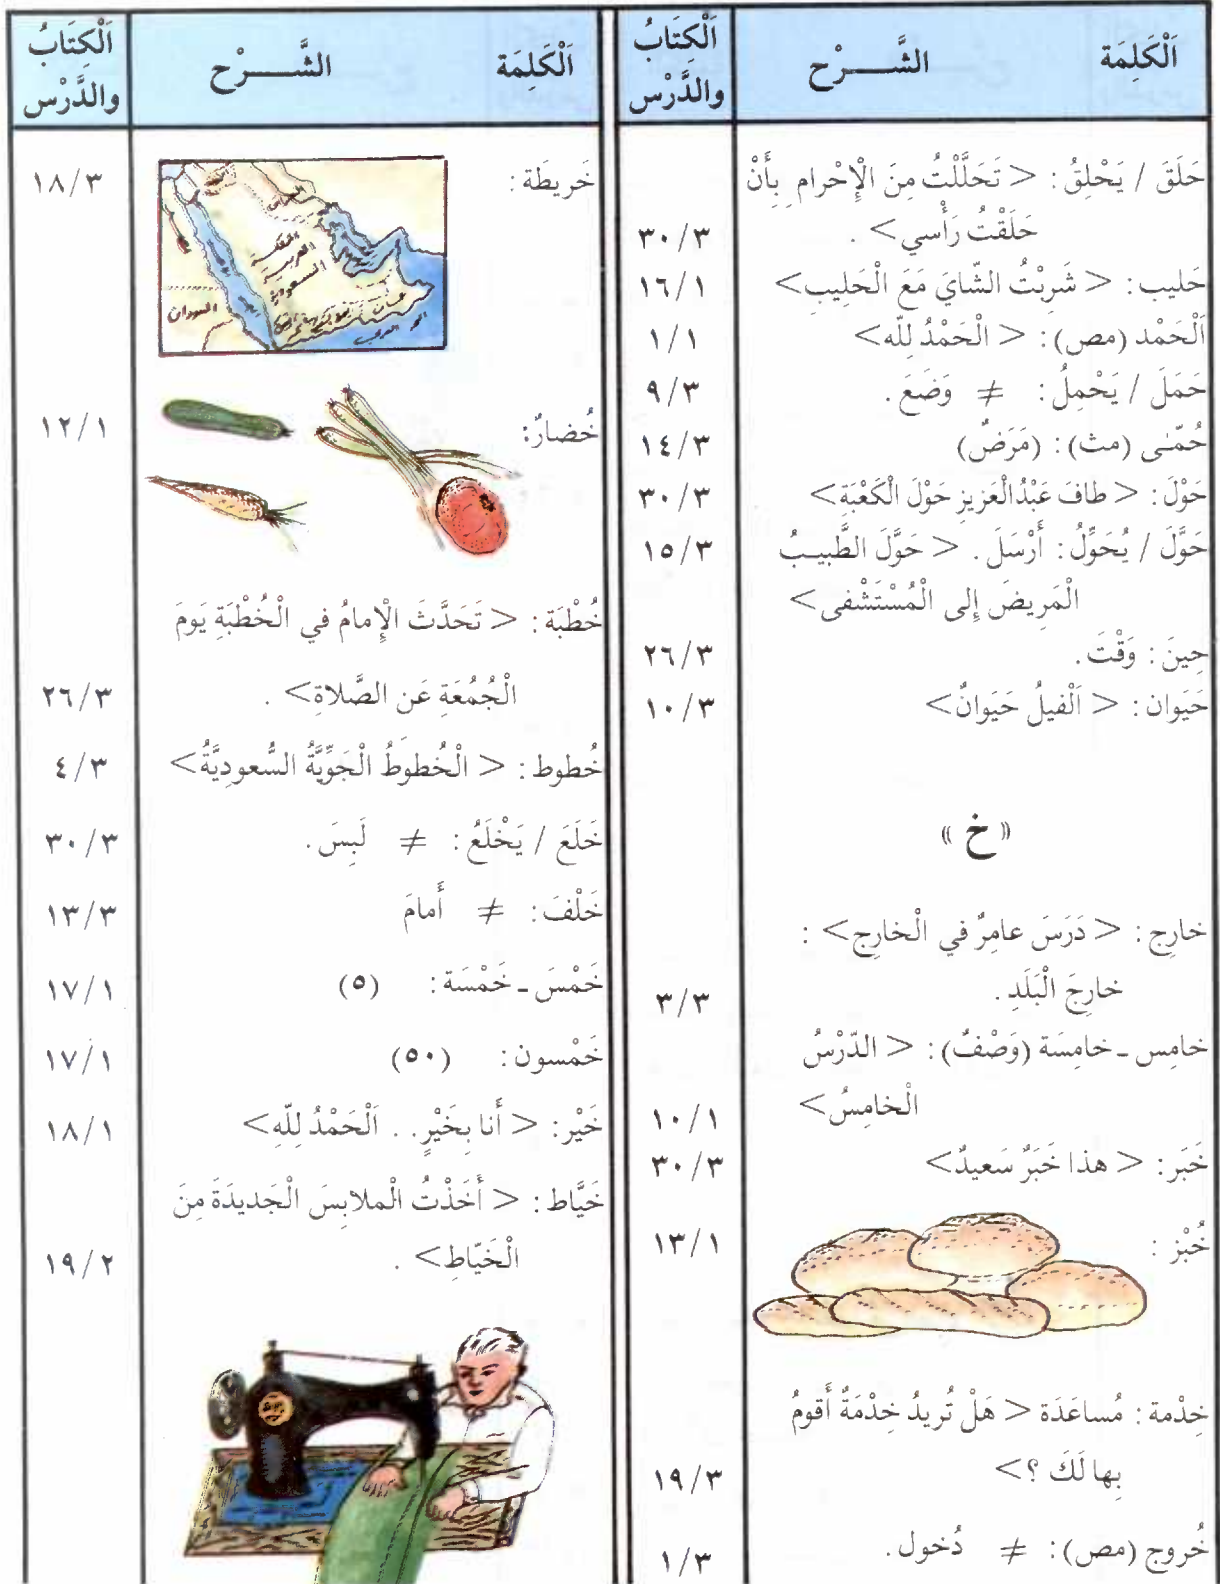 اَلْكَلِمَة الشَّــــرْح اَلْكِتَابُ والدَّرْس
حَلَقَ / يَحْلِقُ : < تَحَلَّلْتُ مِنَ الْإِحْرام ِ بِأَنْ
حَلَقْتُ رَأْسي> . ٣٠/٣
حَليب : < شَرِبْتُ الشّايَ مَعَ الْحَلِيبِ> ١٦/١
اَلْحَمْد (مص) : < الْحَمْدُ لِلّه> ١/١
حَمَلَ / يَحْمِلُ : ≠ وَضَعَ . ٩/٣
حُمّـٰى (مث) : (مَرَضٌ) ١٤/٣
حَوْلَ : < طافَ عَبْدُالْعَزيزِ حَوْلَ الْكَعْبَةِ> ٣٠/٣
حَوَّلَ / يُحَوِّلُ : أَرْسَلَ . < حَوَّلَ الطَّبيـبُ ١٥/٣
الْمَرِيضَ إِلى الْمُسْتَشْفى>
حِينَ : وَقْتَ . ٢٦/٣
حَيَوان : < اَلْفيلُ حَيَوانٌ> ١٠/٣
« خ »
خارِج : < دَرَسَ عامِرٌ في الْخارِجِ> :
خارِجَ الْبَلَدِ . ٣/٣
خامِس ـ خامِسَة (وَصْفٌ) : < الدّرْسُ
الْخامِسُ> ١٠/١
خَبَر : < هذا خَبَرٌ سَعيدٌ> ٣٠/٣
خُبْز : ١٣/١
خِدْمة : مُساعَدَة < هَلْ تُريدُ خِدْمَةً أَقومُ
بِها لَكَ ؟> ١٩/٣
خُروج (مص) : ≠ دُخول . ١/٣
اَلْكَلِمَة الشَّــــرْح اَلْكِتَابُ والدَّرْس
خَريطَة : ١٨/٣
السودان
خُضارٌ: ١٢/١
خُطْبَة : < تَحَدَّثَ الْإِمامُ في الْخُطْبَةِ يَومَ
الْجُمُعَةِ عَنِ الصَّلاةِ> . ٢٦/٣
خُطوط : < الْخُطوطُ الْجَوِّيَّةُ السُّعودِيَّةُ> ٤/٣
خَلَعَ / يَخْلَعُ : ≠ لَبِسَ . ٣٠/٣
خَلْفَ : ≠ أَمامَ ١٣/٣
خَمْسَ ـ خَمْسَة : (٥) ١٧/١
خَمْسون : (٥٠) ١٧/١
خَيْر : < أَنا بِخَيْرٍ . . اَلْحَمْدُ لِلّهِ> ١٨/١
خَيَّاط : < أَخَذْتُ الْملابِسَ الْجَديدَةَ مِنَ
الْخَيّاطِ> . ١٩/٢